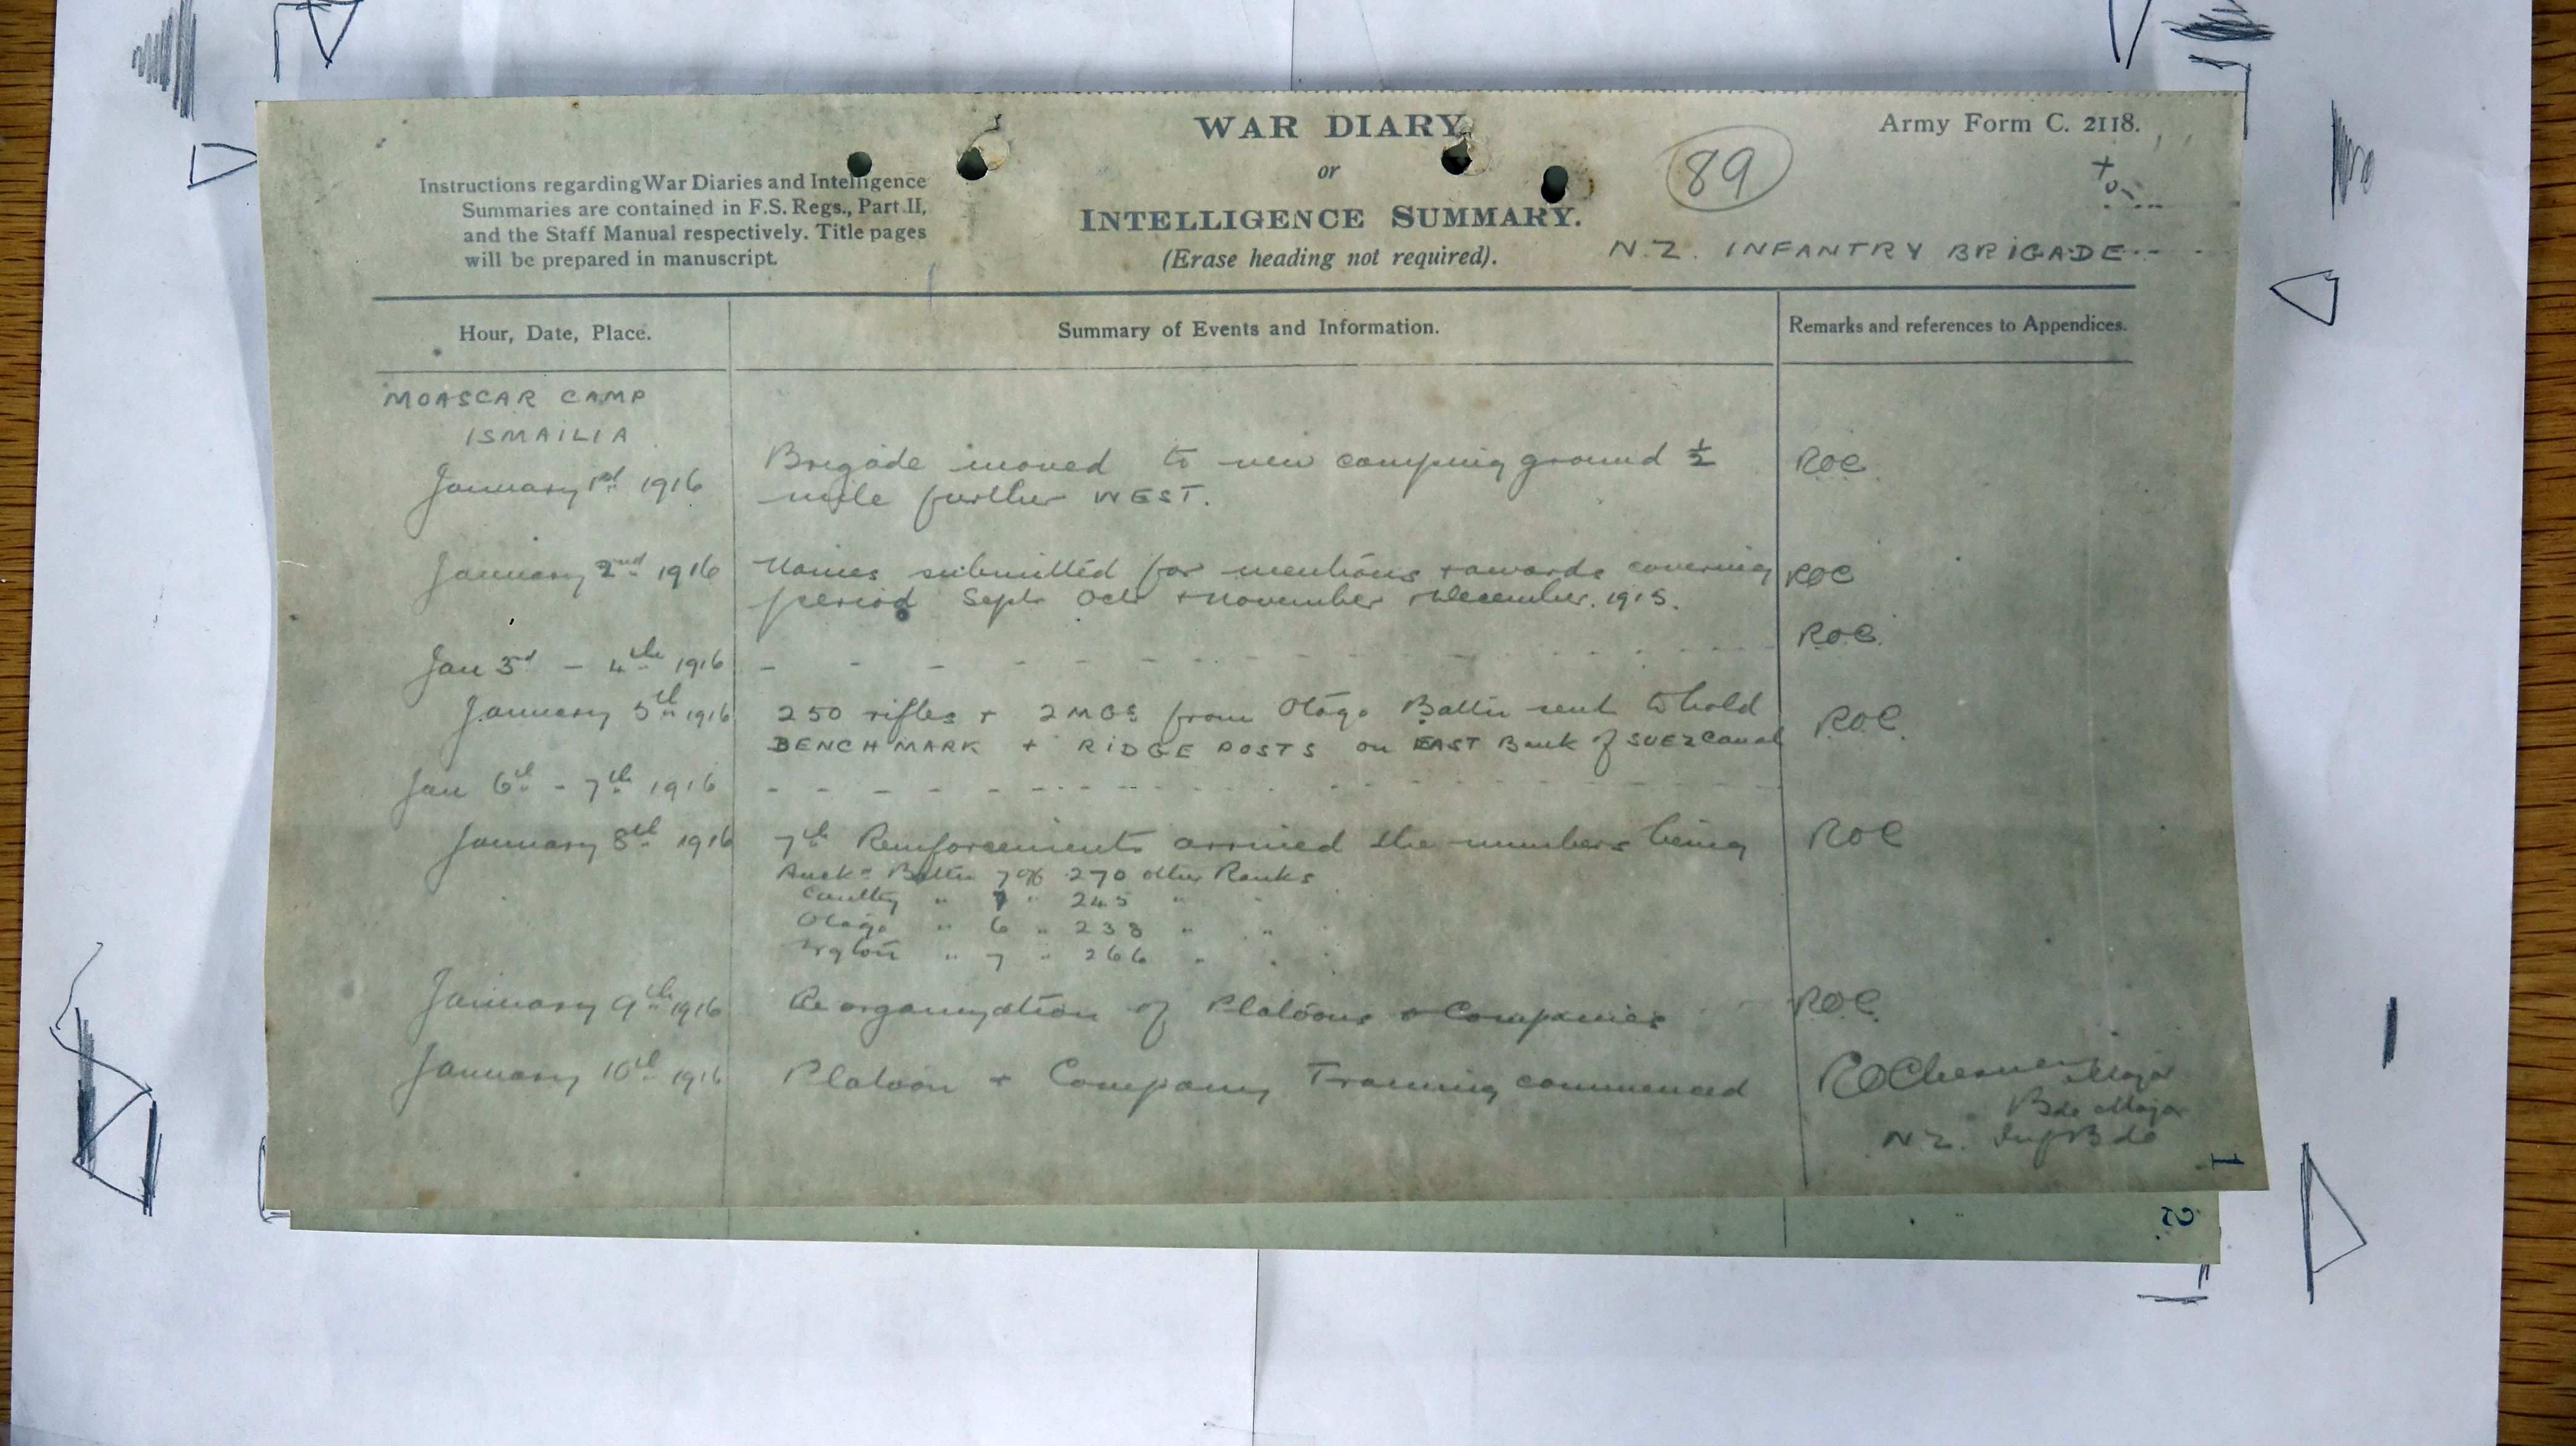 WAR DIARY
or
INTELLIGENCE SUMMARY.
(Erase heading not required).
Army Form C. 2118.
89
Instructions regarding War Diaries and Intelligence
Summaries are contained in F.S. Regs., Part II,
and the Staff Manual respectively. Title pages
will be prepared in manuscript.
N.Z. INFANTRY BRIGADE
Hour, Date, Place. Summary of Events and Information. Remarks and references to Appendices.
MOASCAR CAMP
ISMAILIA
January 1st 1916 Brigade moved to new camping ground ½ ROC
mile further WEST.
January 2nd 1916 Names submitted for mentions + awards covering ROC
period Sept Oct + November + December. 1915.
Jan 3rd - 4th 1916 - - - - - - - - - - ROC.
January 5th 1916 250 rifles + 2 MGs from Otago Battn sent to hold ROC.
BENCHMARK + RIDGE POSTS on EAST Bank of SUEZ Canal
Jan 6th - 7th 1916 - - - - - - - - - -
January 8th 1916 7th Reinforcements arrived the numbers being ROC
Auckd Battn 7 off 270 other Ranks
Cantby " 7 " 245 " "
Otago " 6 " 238 " "
Wgton " 7 " 266 " "
January 9th 1916 Reorganization of Platoons & Companies ROC.
January 10th 1916 Platoon + Company Training commenced
ROChesney Major
Bde Major
N.Z. Inf Bde
1
2